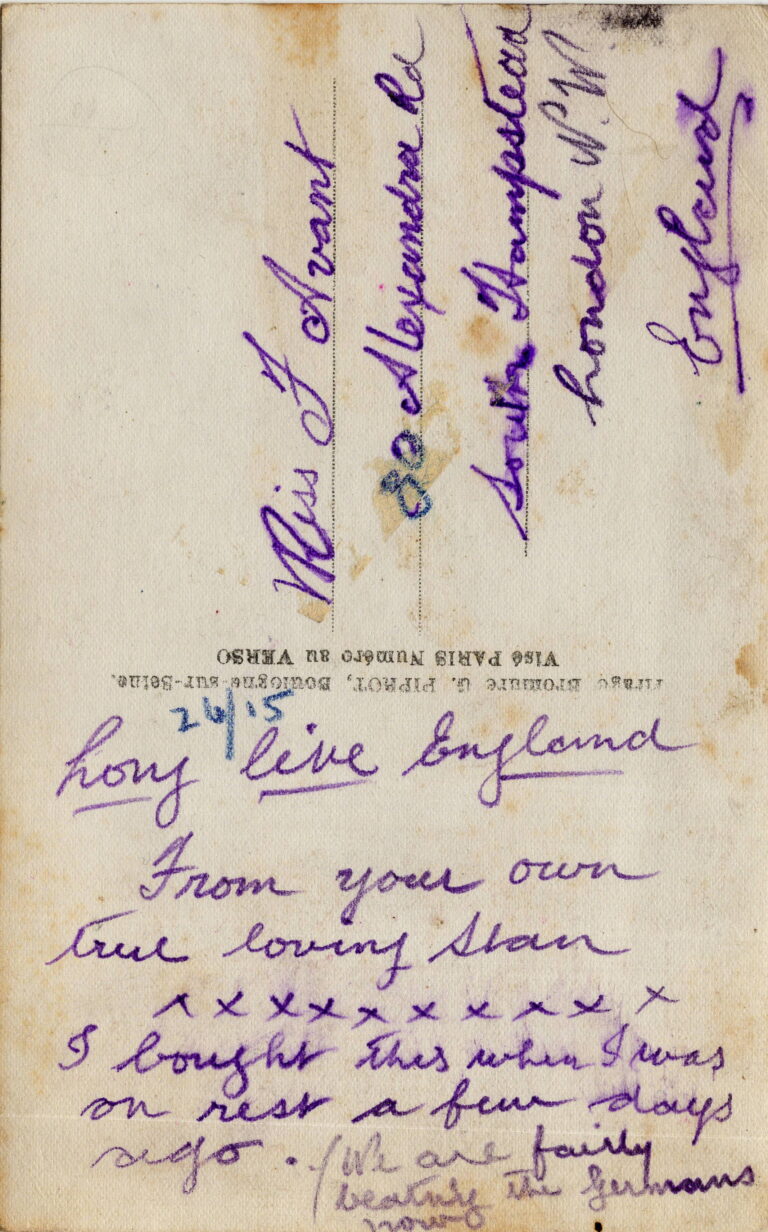 Miss F Avant
90 Alexandra Rd
South Hampstead
London N.W.
England
Visé PARIS Numéro au VERSO
Tirage Bromure G. PIPROT, Boulogne-sur-Seine.
Long live England
From your own
true loving Stan
x x x x x x x x x x
I bought this when I was
on rest a few days
ago. (We are fairly
beating the Germans
now)